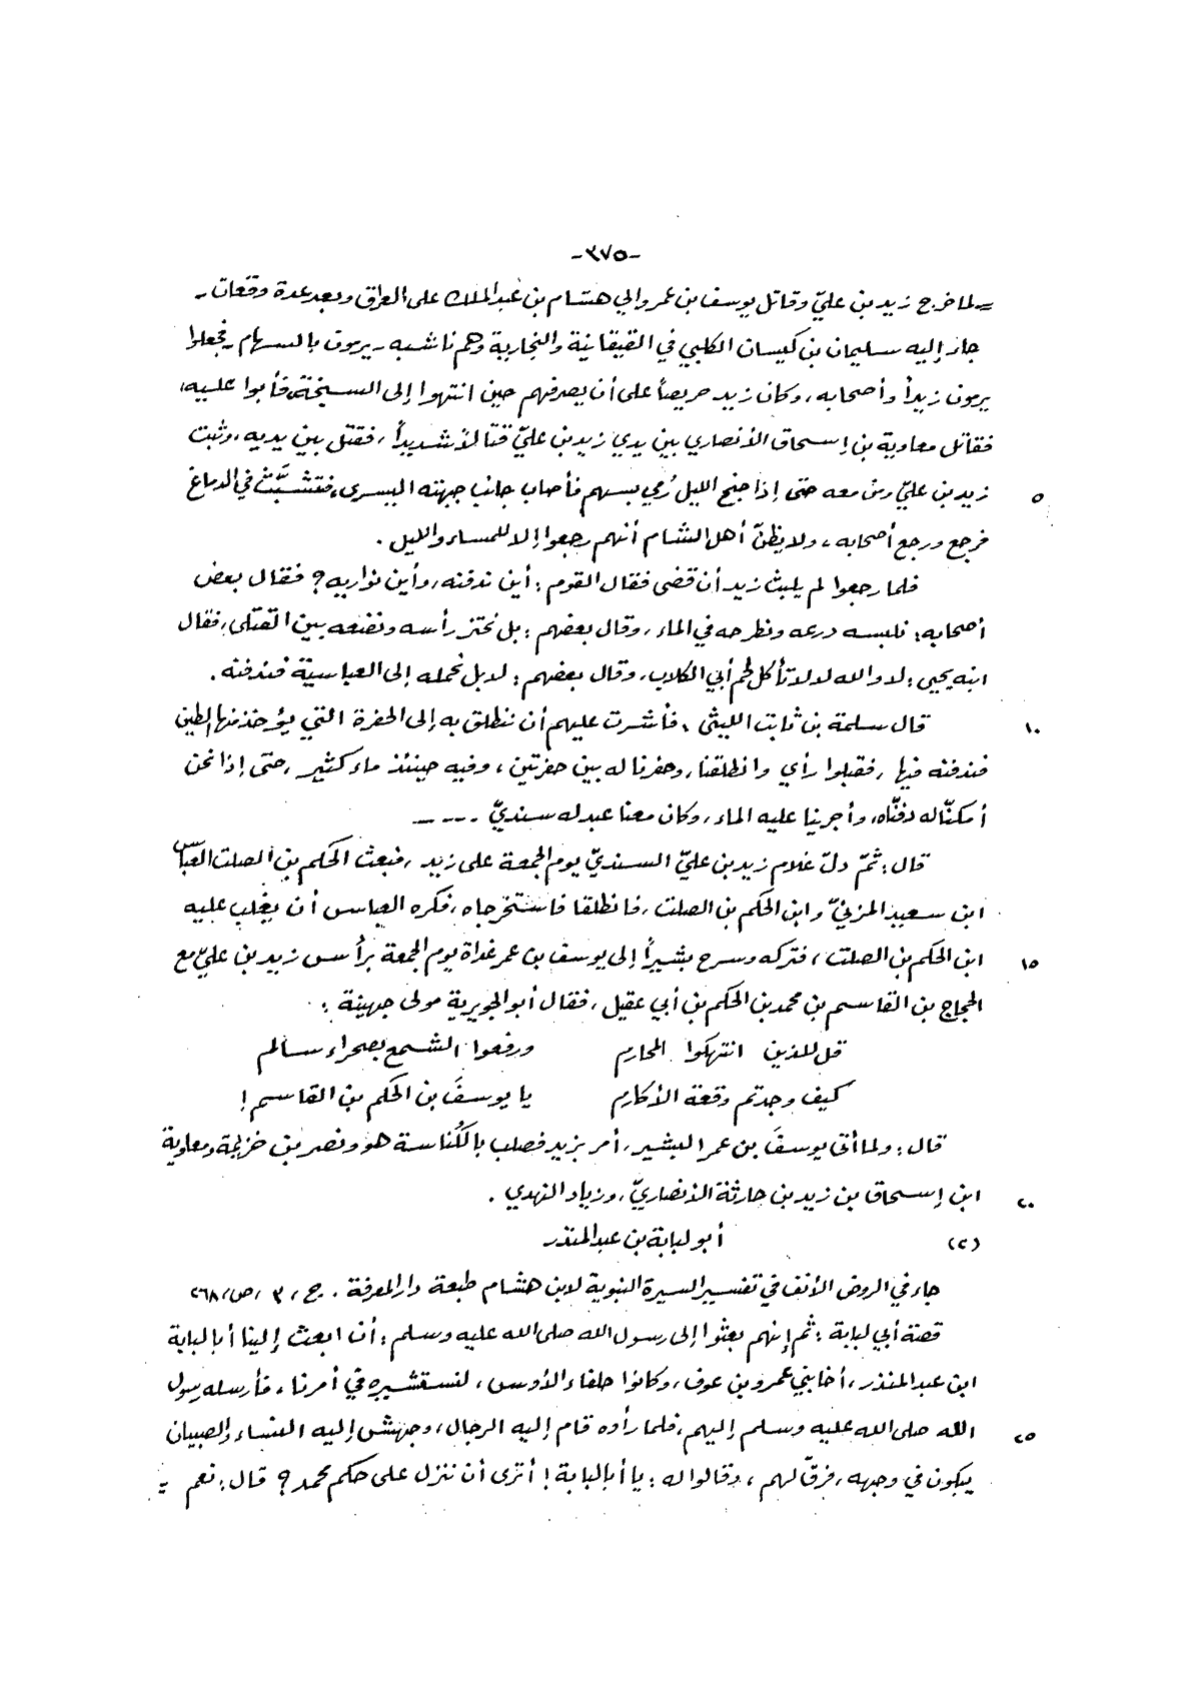 -٣٧٥-
= لما خرج زيد بن عليّ وقاتل يوسف بن عمر والي هشام بن عبد الملك على العراق وبعد عدة وقعات -
جاء إليه سليمان بن كيسان الكلبي في القيقانية والنجارية وهم ناشبه - يرمون بالسهام - فجعلوا
يرمون زيداً وأصحابه، وكان زيد حريصاً على أن يصرفهم حين انتهوا إلى السبخة، فأبوا عليه،
فقاتل معاوية بن إسحاق الأنصاري بين يدي زيد بن عليّ قتالاً شديداً، فقتل بين يديه، وثبت
٥ زيد بن عليّ ومن معه حتى إذا جنح الليل رُمي بسهم فأصاب جانب جبهته اليسرى، فتشبَّث في الدماغ
فرجع ورجع أصحابه، ولا يظنّ أهل الشام أنهم رجعوا إلا للمساء والليل.
فلما رجعوا لم يلبث زيد أن قضى فقال القوم: أين ندفنه، وأين نواريه؟ فقال بعض
أصحابه: نلبسه درعه ونطرحه في الماء، وقال بعضهم: بل نحتز رأسه ونضعه بين القتلى، فقال
ابنه يحيى: لا والله لا تأكل لحم أبي الكلاب، وقال بعضهم: لا بل نحمله إلى العباسيّة فندفنه.
١٠ قال سلمة بن ثابت الليثي، فأشرت عليهم أن ننطلق به إلى الحفرة التي يؤخذ منها الطين
فندفنه فيها، فقبلوا رأي وانطلقنا، وحفرنا له بين حفرتين، وفيه حينئذ ماء كثير، حتى إذا نحن
أمكنّا له دفنّاه، وأجرينا عليه الماء، وكان معنا عبد له سنديّ ----
قال: ثمّ دلّ غلام زيد بن عليّ السنديّ يوم الجمعة على زيد، فبعث الحكم بن الصلت العباس
ابن سعيد المزنيّ وابن الحكم بن الصلت، فانطلقا فاستخرجاه، فكره العباس أن يغلب عليه
١٥ ابن الحكم بن الصلت، فتركه وسرح بشيراً إلى يوسف بن عمر غداة يوم الجمعة برأس زيد بن عليّ مع
الحجاج بن القاسم بن محمد بن الحكم بن أبي عقيل، فقال أبو الجويرية مولى جهينة:
قل للذين انتهكوا المحارم ورفعوا الشمع بصحراء سالم
كيف وجدتم وقعة الأكارم يا يوسفَ بن الحكم بن القاسم!
قال: ولما أتى يوسفَ بن عمر البشير، أمر بزيد فصلب بالكُناسة هو ونصر بن خزيمة ومعاوية
٢٠ ابن إسحاق بن زيد بن حارثة الأنصاريّ، وزياد النهدي.
(٢) أبو لبابة بن عبد المنذر
جاء في الروض الأنف في تفسير السيرة النبوية لابن هشام طبعة دار المعرفة. ج، ٣، ص، ٢٦٨
قصة أبي لبابة: ثم إنهم بعثوا إلى رسول الله صلى الله عليه وسلم: أن ابعث إلينا أبا لبابة
ابن عبد المنذر، أخا بني عمرو بن عوف، وكانوا حلفاء الأوس، لنستشيره في أمرنا، فأرسله رسول
٢٥ الله صلى الله عليه وسلم إليهم، فلما رأوه قام إليه الرجال، وجهش إليه النساء والصبيان
يبكون في وجهه، فرقّ لهم، وقالوا له: يا أبا لبابة! أترى أن ننزل على حكم محمد؟ قال: نعم =